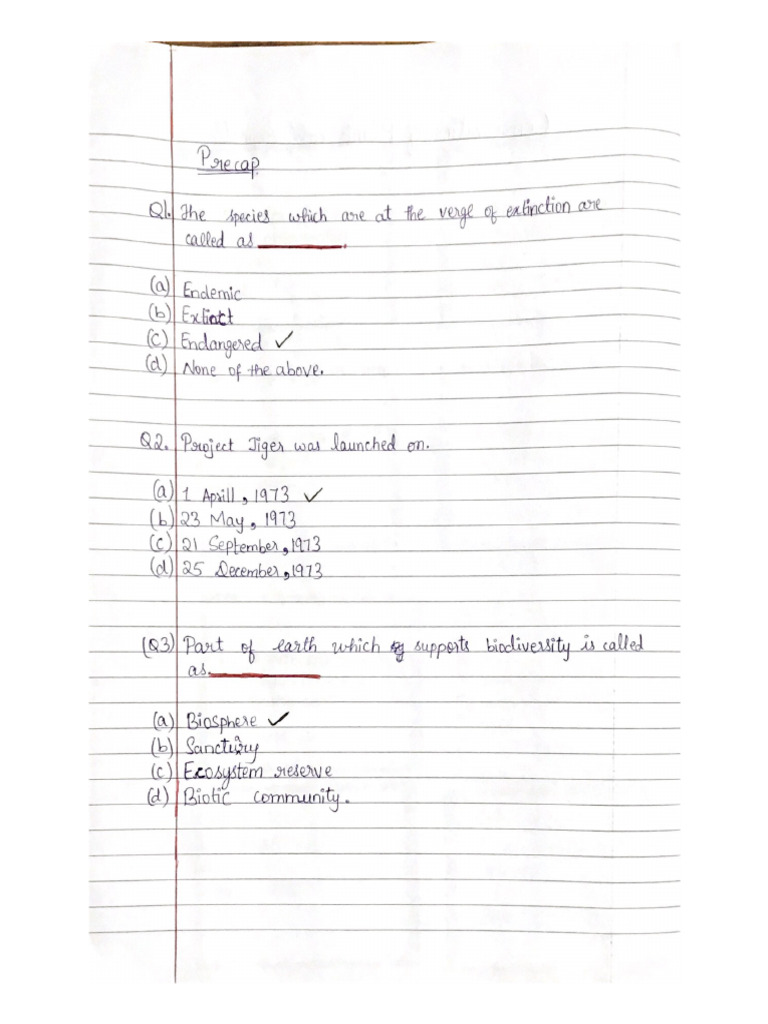 Precap
Q1. The species which are at the verge of extinction are
called as __________.
(a) Endemic
(b) Extinct
(c) Endangered ✓
(d) None of the above.
Q2. Project Tiger was launched on.
(a) 1 Aprill, 1973 ✓
(b) 23 May, 1973
(c) 21 September, 1973
(d) 25 December, 1973
(Q3) Part of earth which supports biodiversity is called
as. __________
(a) Biosphere ✓
(b) Sanctury
(c) Ecosystem reserve
(d) Biotic community.